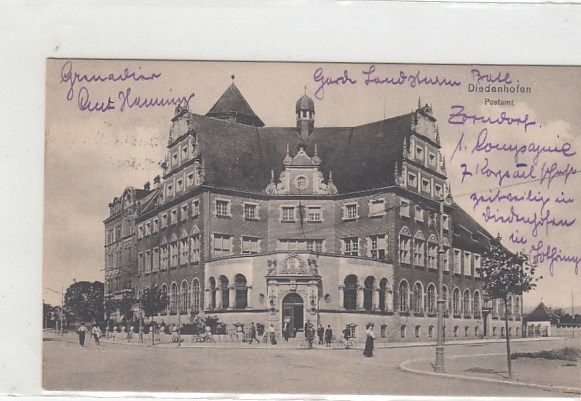 Grenadier
Curt Hanning
Garde Landsturm Batl.
Diedenhofen
Postamt
Zorndorf.
1. Compagnie
7 Korpcalschaft
zeitweilig in
Diedenhofen
in Lothringen